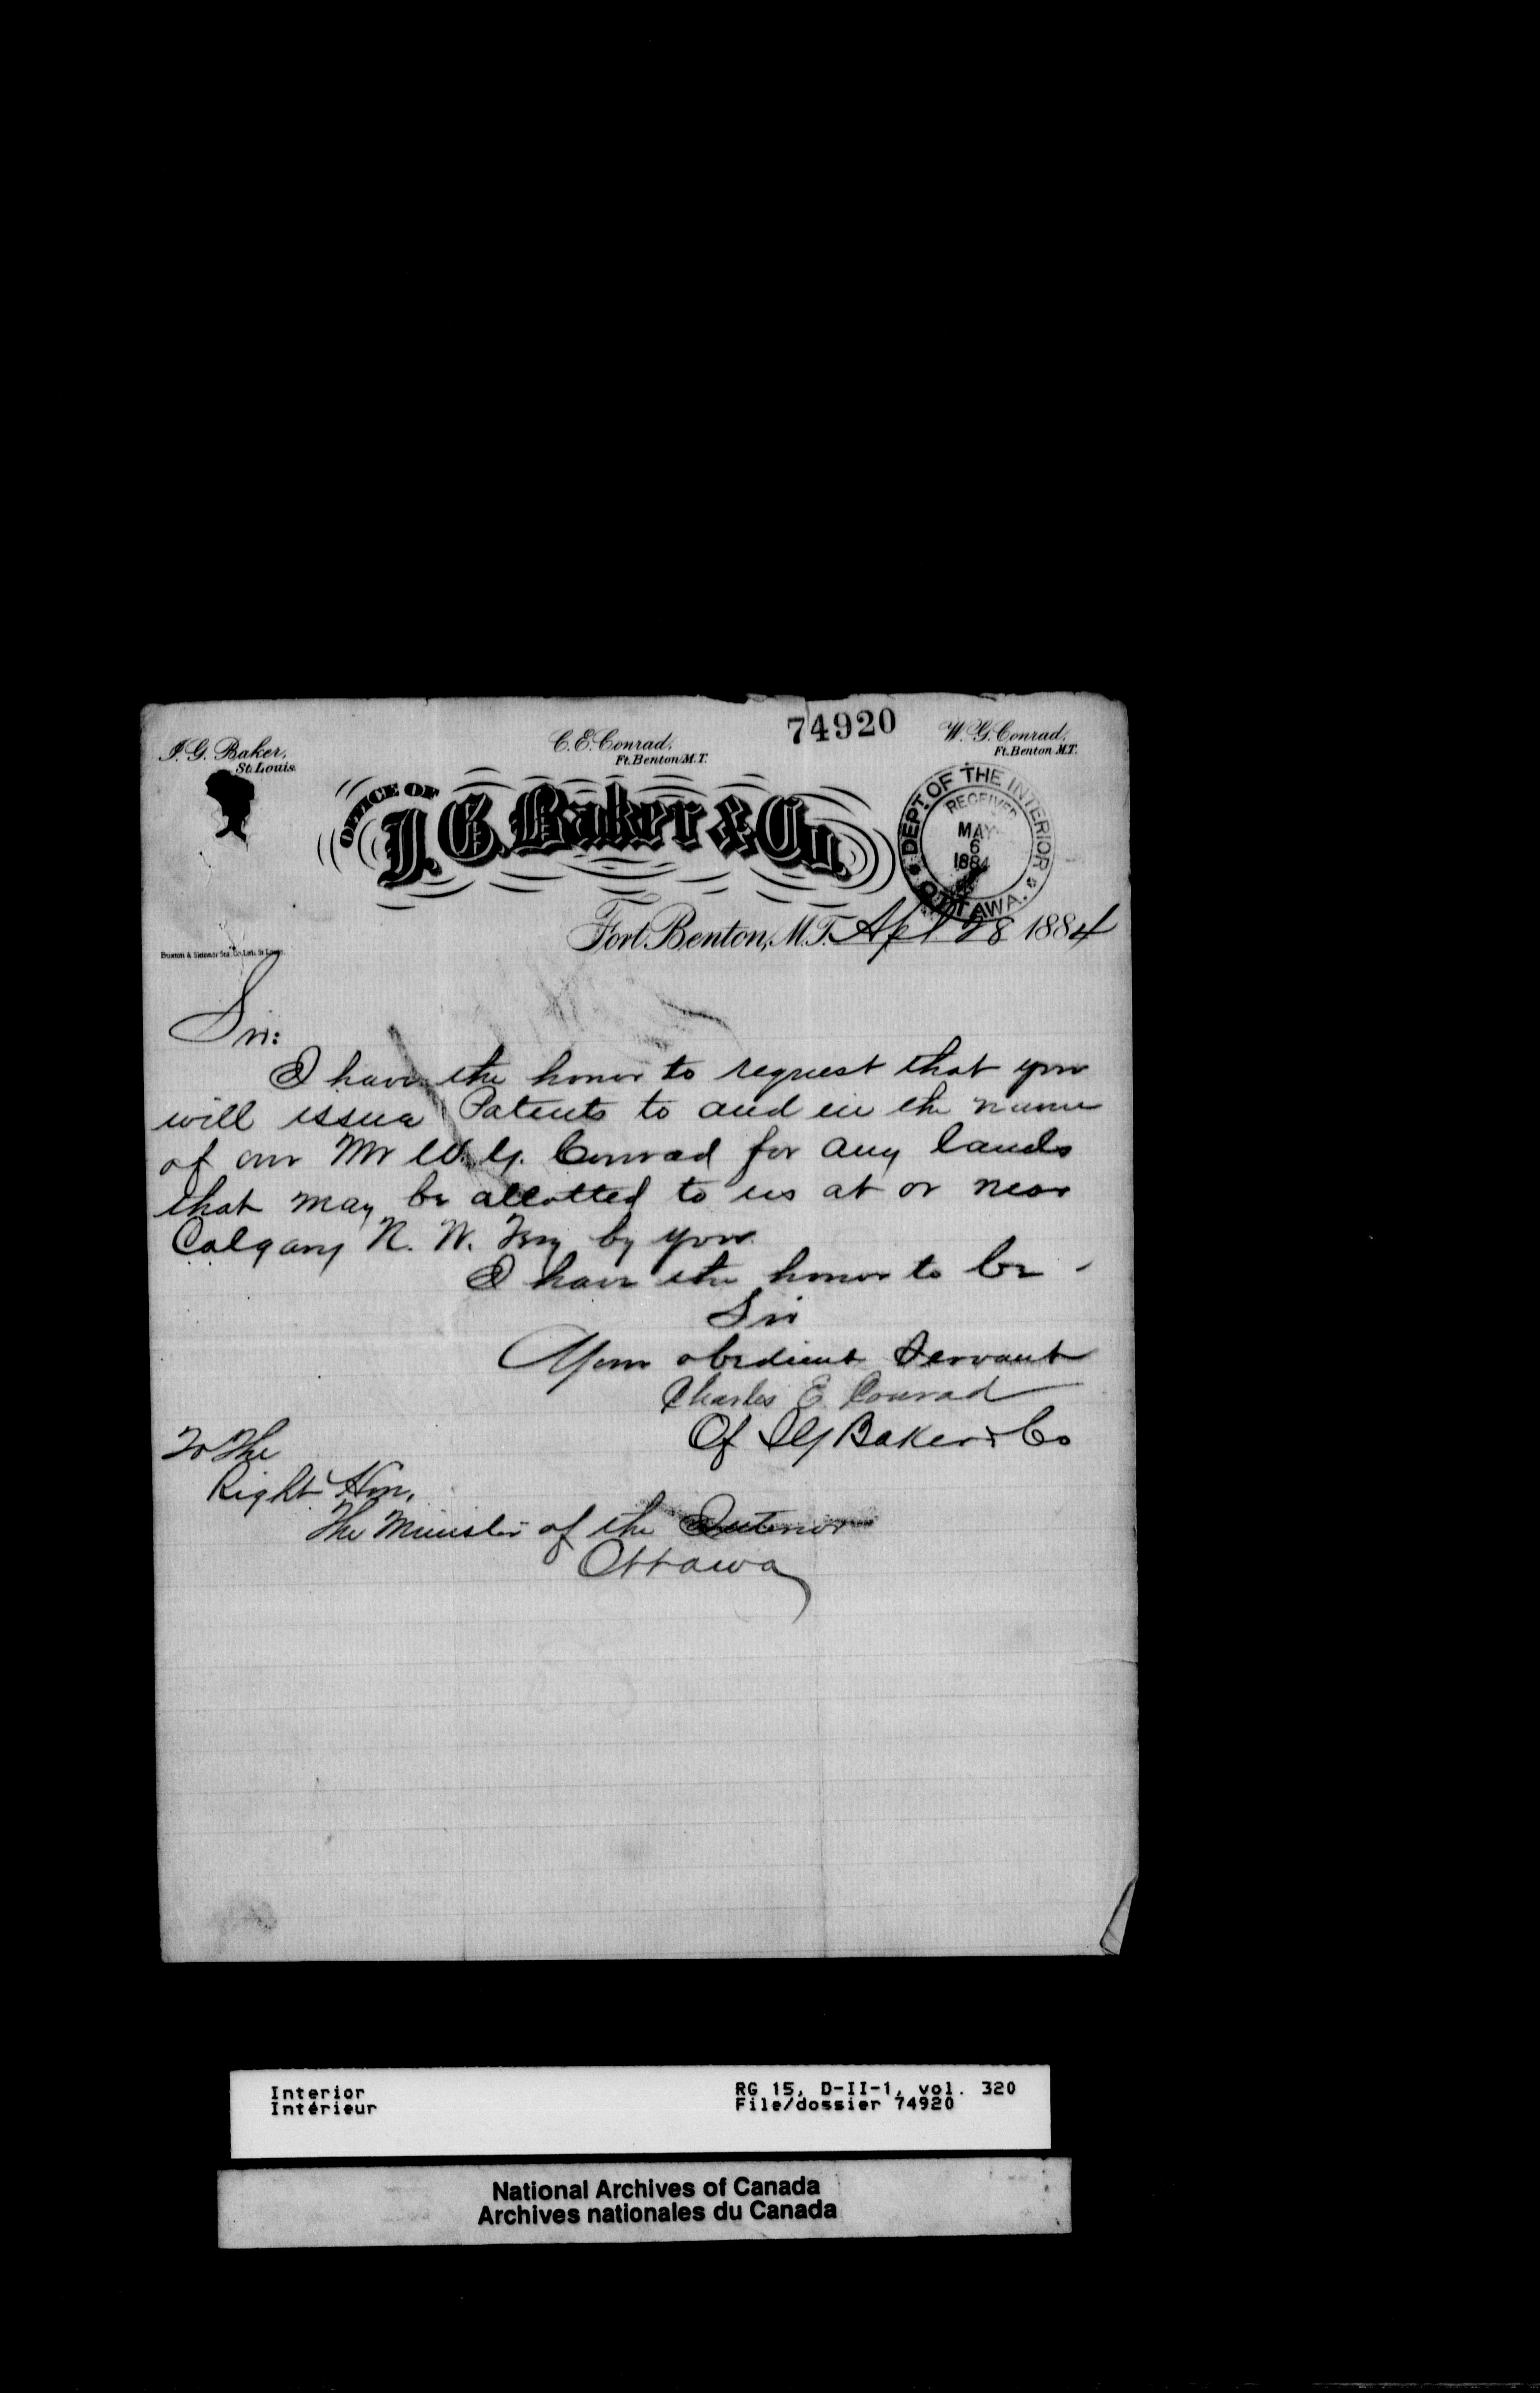 74920
I. G. Baker,
St. Louis.
C. E. Conrad,
Ft. Benton M.T.
W. G. Conrad,
Ft. Benton M.T.
OFFICE OF
I. G. Baker & Co.
DEPT. OF THE INTERIOR
RECEIVED
MAY
6
1884
OTTAWA.
Fort Benton, M.T. Apl 28 1884
Sir:
I have the honor to request that you
will issue Patents to and in the name
of our Mr W. G. Conrad for any lands
that may be allotted to us at or near
Calgary N. W. Try by you.
I have the honor to be -
Sir
Your obedient Servant
Charles E Conrad
Of I G Baker & Co
To The
Right Hon.
The Minister of the Interior
Ottawa
Interior
Intérieur
RG 15, D-II-1, vol. 320
File/dossier 74920
National Archives of Canada
Archives nationales du Canada